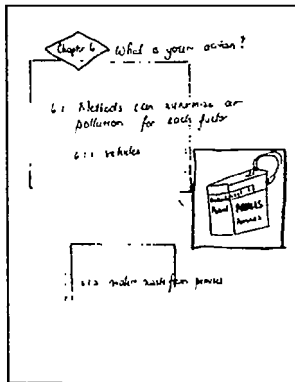 Chapter 6
What is your action?
6.1 Methods can minimize air
pollution for each factor
6.1.1 vehicles
6.1.2 waste from